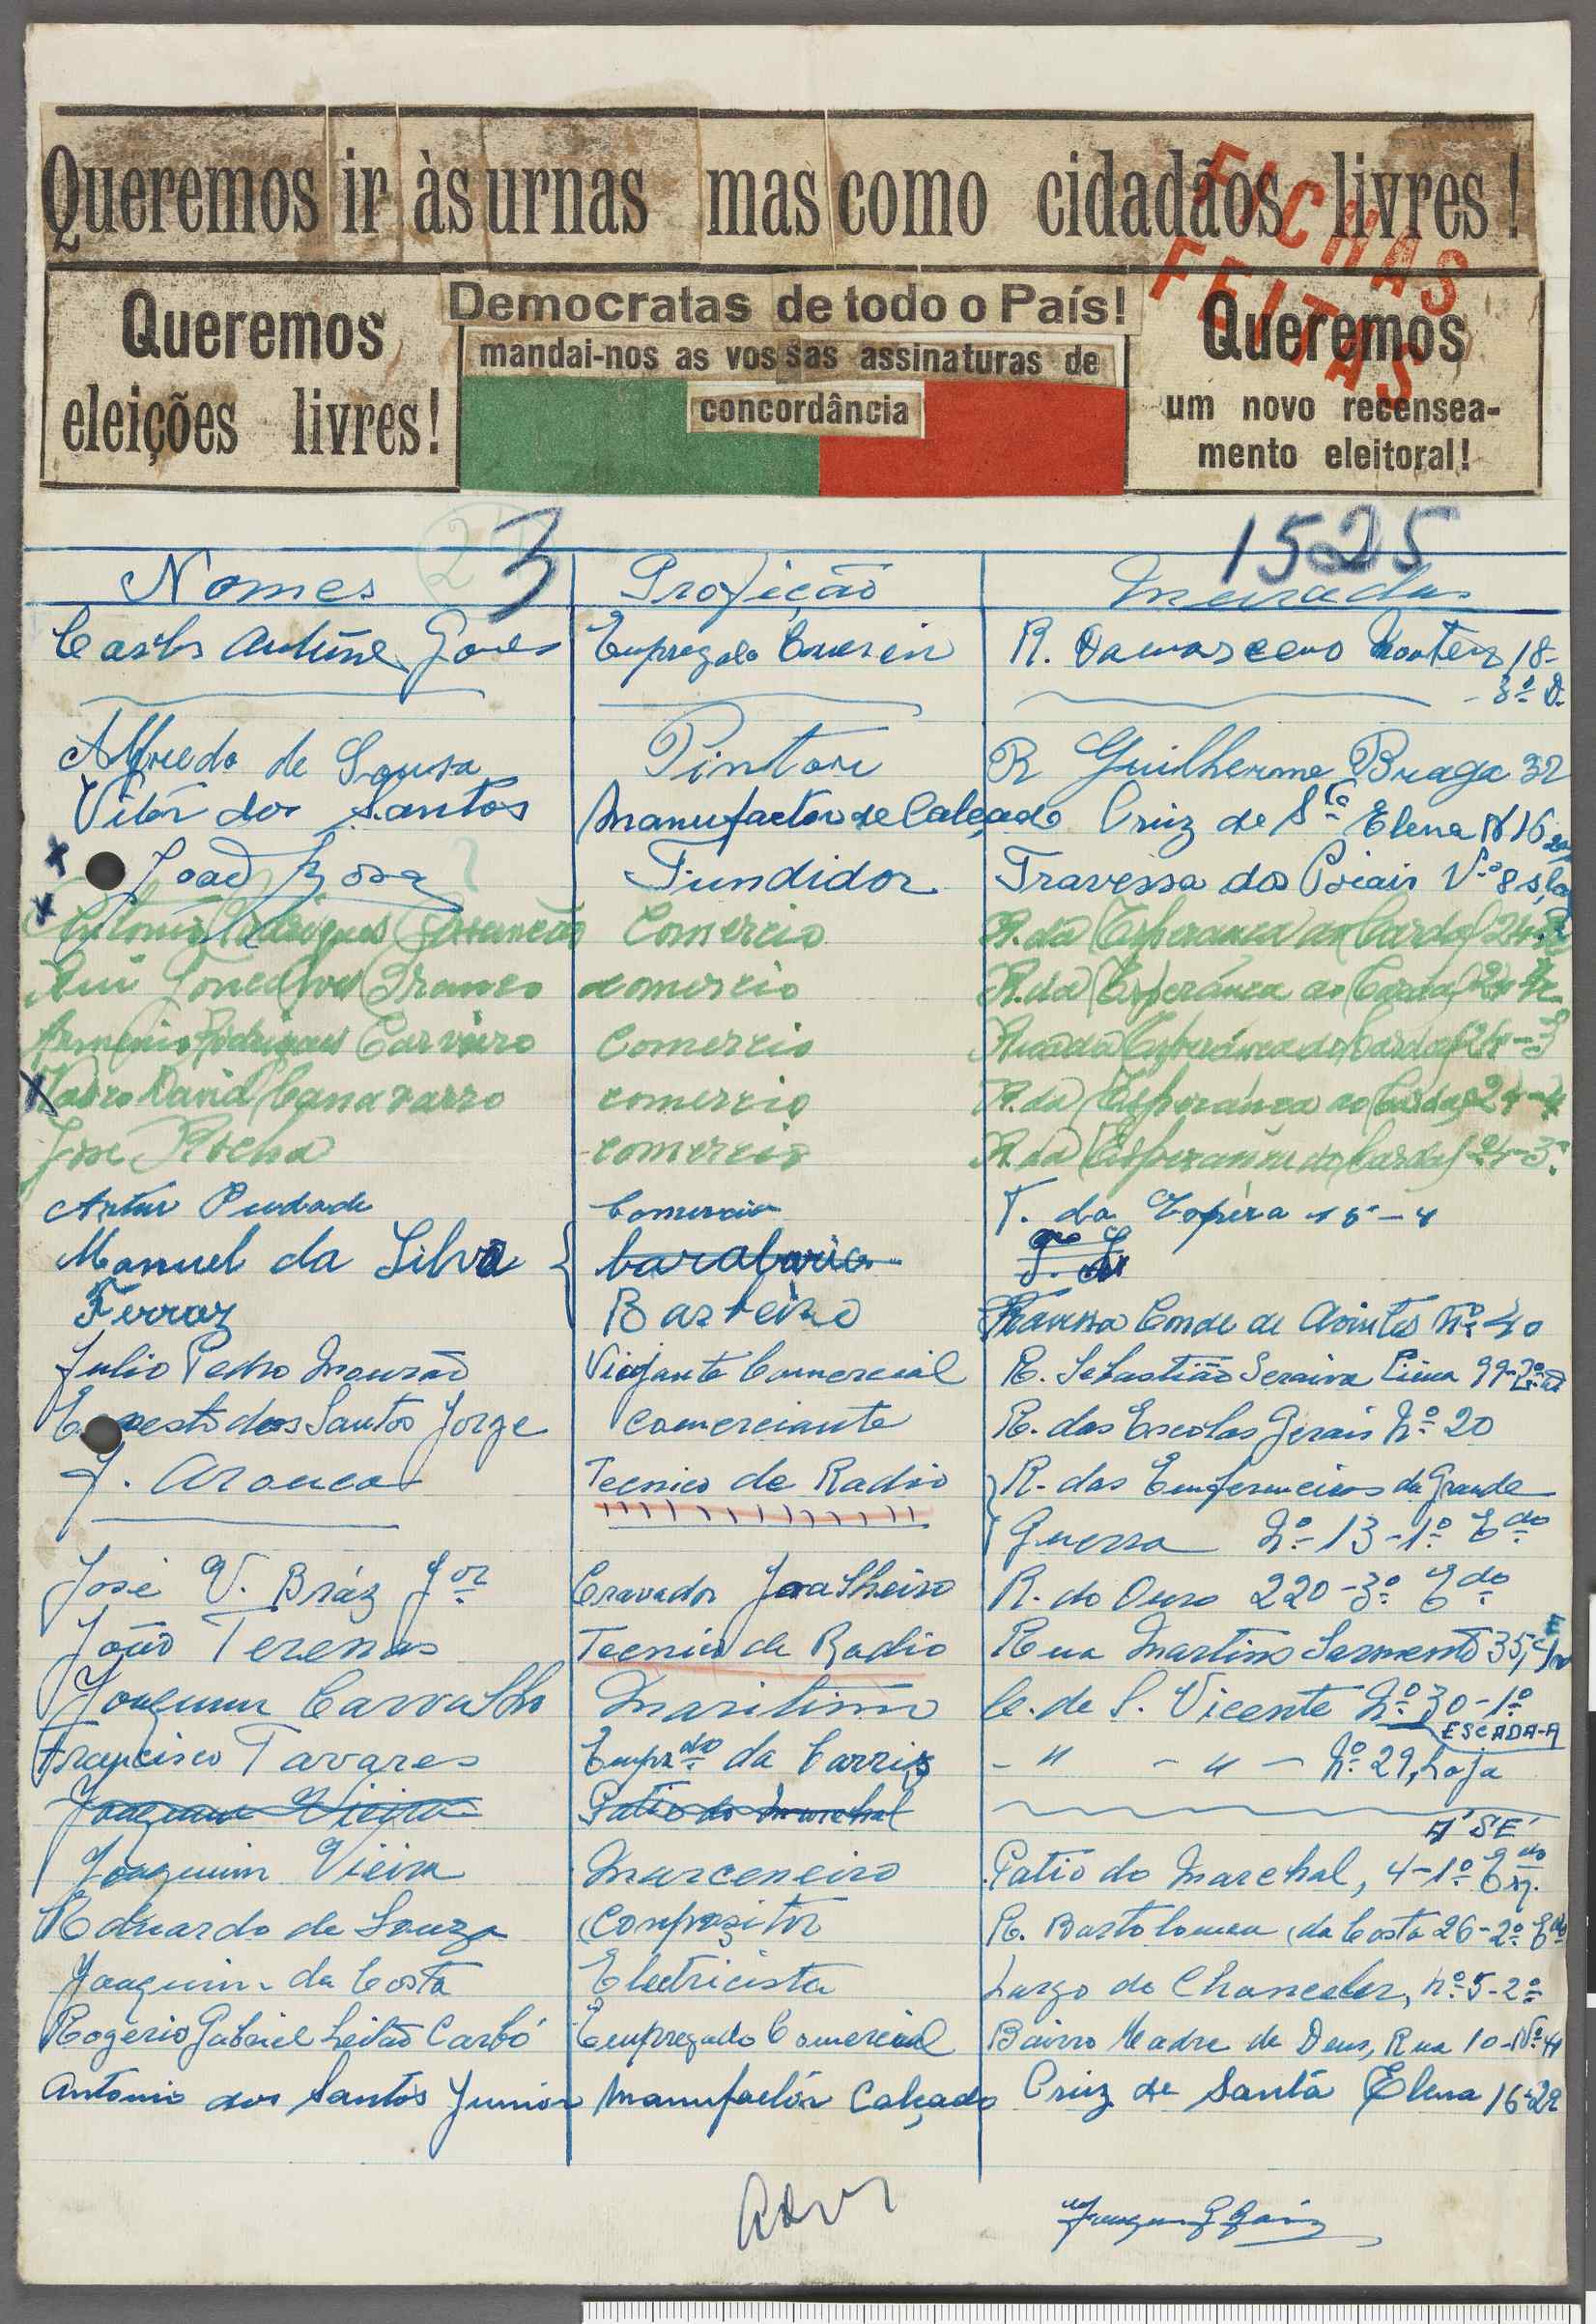 Queremos ir às urnas mas como cidadãos livres!
FICHAS
FEITAS
Queremos
eleições livres!
Democratas de todo o País!
mandai-nos as vossas assinaturas de
concordância
Queremos
um novo recensea-
mento eleitoral!
3 1525
Nomes Profição Muradas
R. Damasceno Monteiro 18-
3º D.
Alfredo de Sousa Pintore R Guilherme Braga 32
Vitór dos Santos Manufactor de Calçado Cruz de Stª Elena N 16
João Rosa Fundidor Travessa dos Poiais Nº 8 s/loj
António Rodrigues Comercio R. da Esperança ao Cardal 24
Rui Gonçalves Branco comercio R. da Esperança ao Cardal 24
Armenio Rodrigues Carveiro Comercio Rua da Esperança do Cardal 24-3
David Canavarro comercio R. da Esperança ao Cardal 24-4
José Rocha comercio R. da Esperança do Cardal 24-3º
Artur Piedade Comercio T. da Espera 18-4
Manuel da Silva
Ferraz Barbeiro Travessa Conde de Avintes nº 40
Julio Pedro Mourão Viajante Comercial R. Sebastião Seraiva Lima 99-2º
Ernesto dos Santos Jorge Comerciante R. das Escolas Gerais Nº 20
J. Arouca Tecnico de Radio R. das Enfermeiras da Grande
Guerra Nº 13-1º Edo
José V. Bráz Jor Cravador Joalheiro R. do Ouro 220-3º Edo
João Terenas Tecnico de Radio Rua Martins Sarmento 35,
Joaquim Carvalho Maritimo C. de S. Vicente Nº 30-1º
ESCADA-A
Francisco Tavares Empr.do da Carris - " - " - Nº 29, Loja
Joaquim Vieira Patio do Marechal
Á SÉ
Joaquim Vieira Marceneiro Patio do Marechal, 4-1º Esq.
Eduardo de Souza Compositor R. Bartolomeu da Costa 26-2º Edo
Joaquim da Costa Electricista Largo do Chanceler, nº 5-2º
Rogério Gabriel Leitão Carbó Empregado Comercial Bairro Madre de Deus, Rua 10-Nº 41
Antonio dos Santos Junior Manufactór Calçado Cruz de Santa Elena 16-